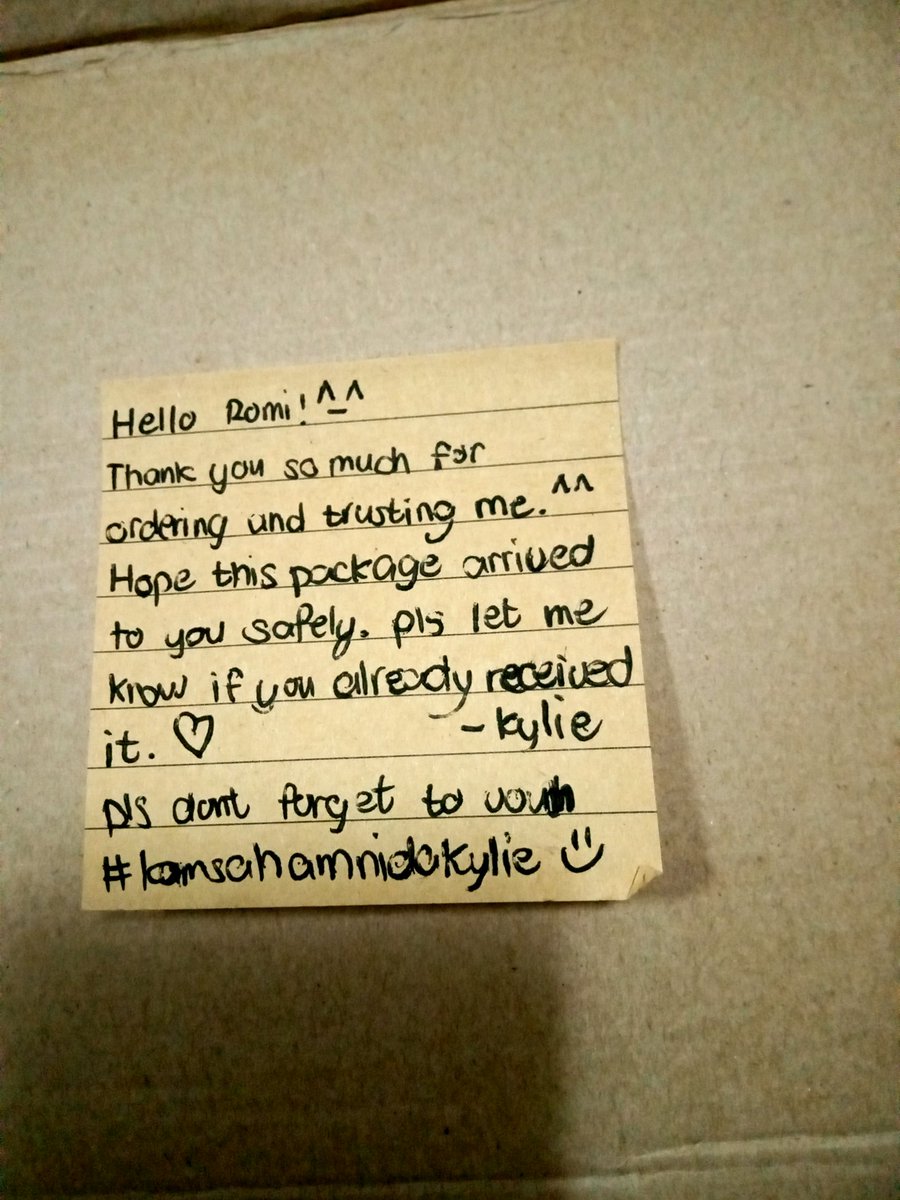 Hello Romi! ^_^
Thank you so much for
ordering and trusting me. ^^
Hope this package arrived
to you safely. pls let me
know if you already received
it. ♡ -kylie
pls dont forget to vouch
#kamsahamnidakylie :)